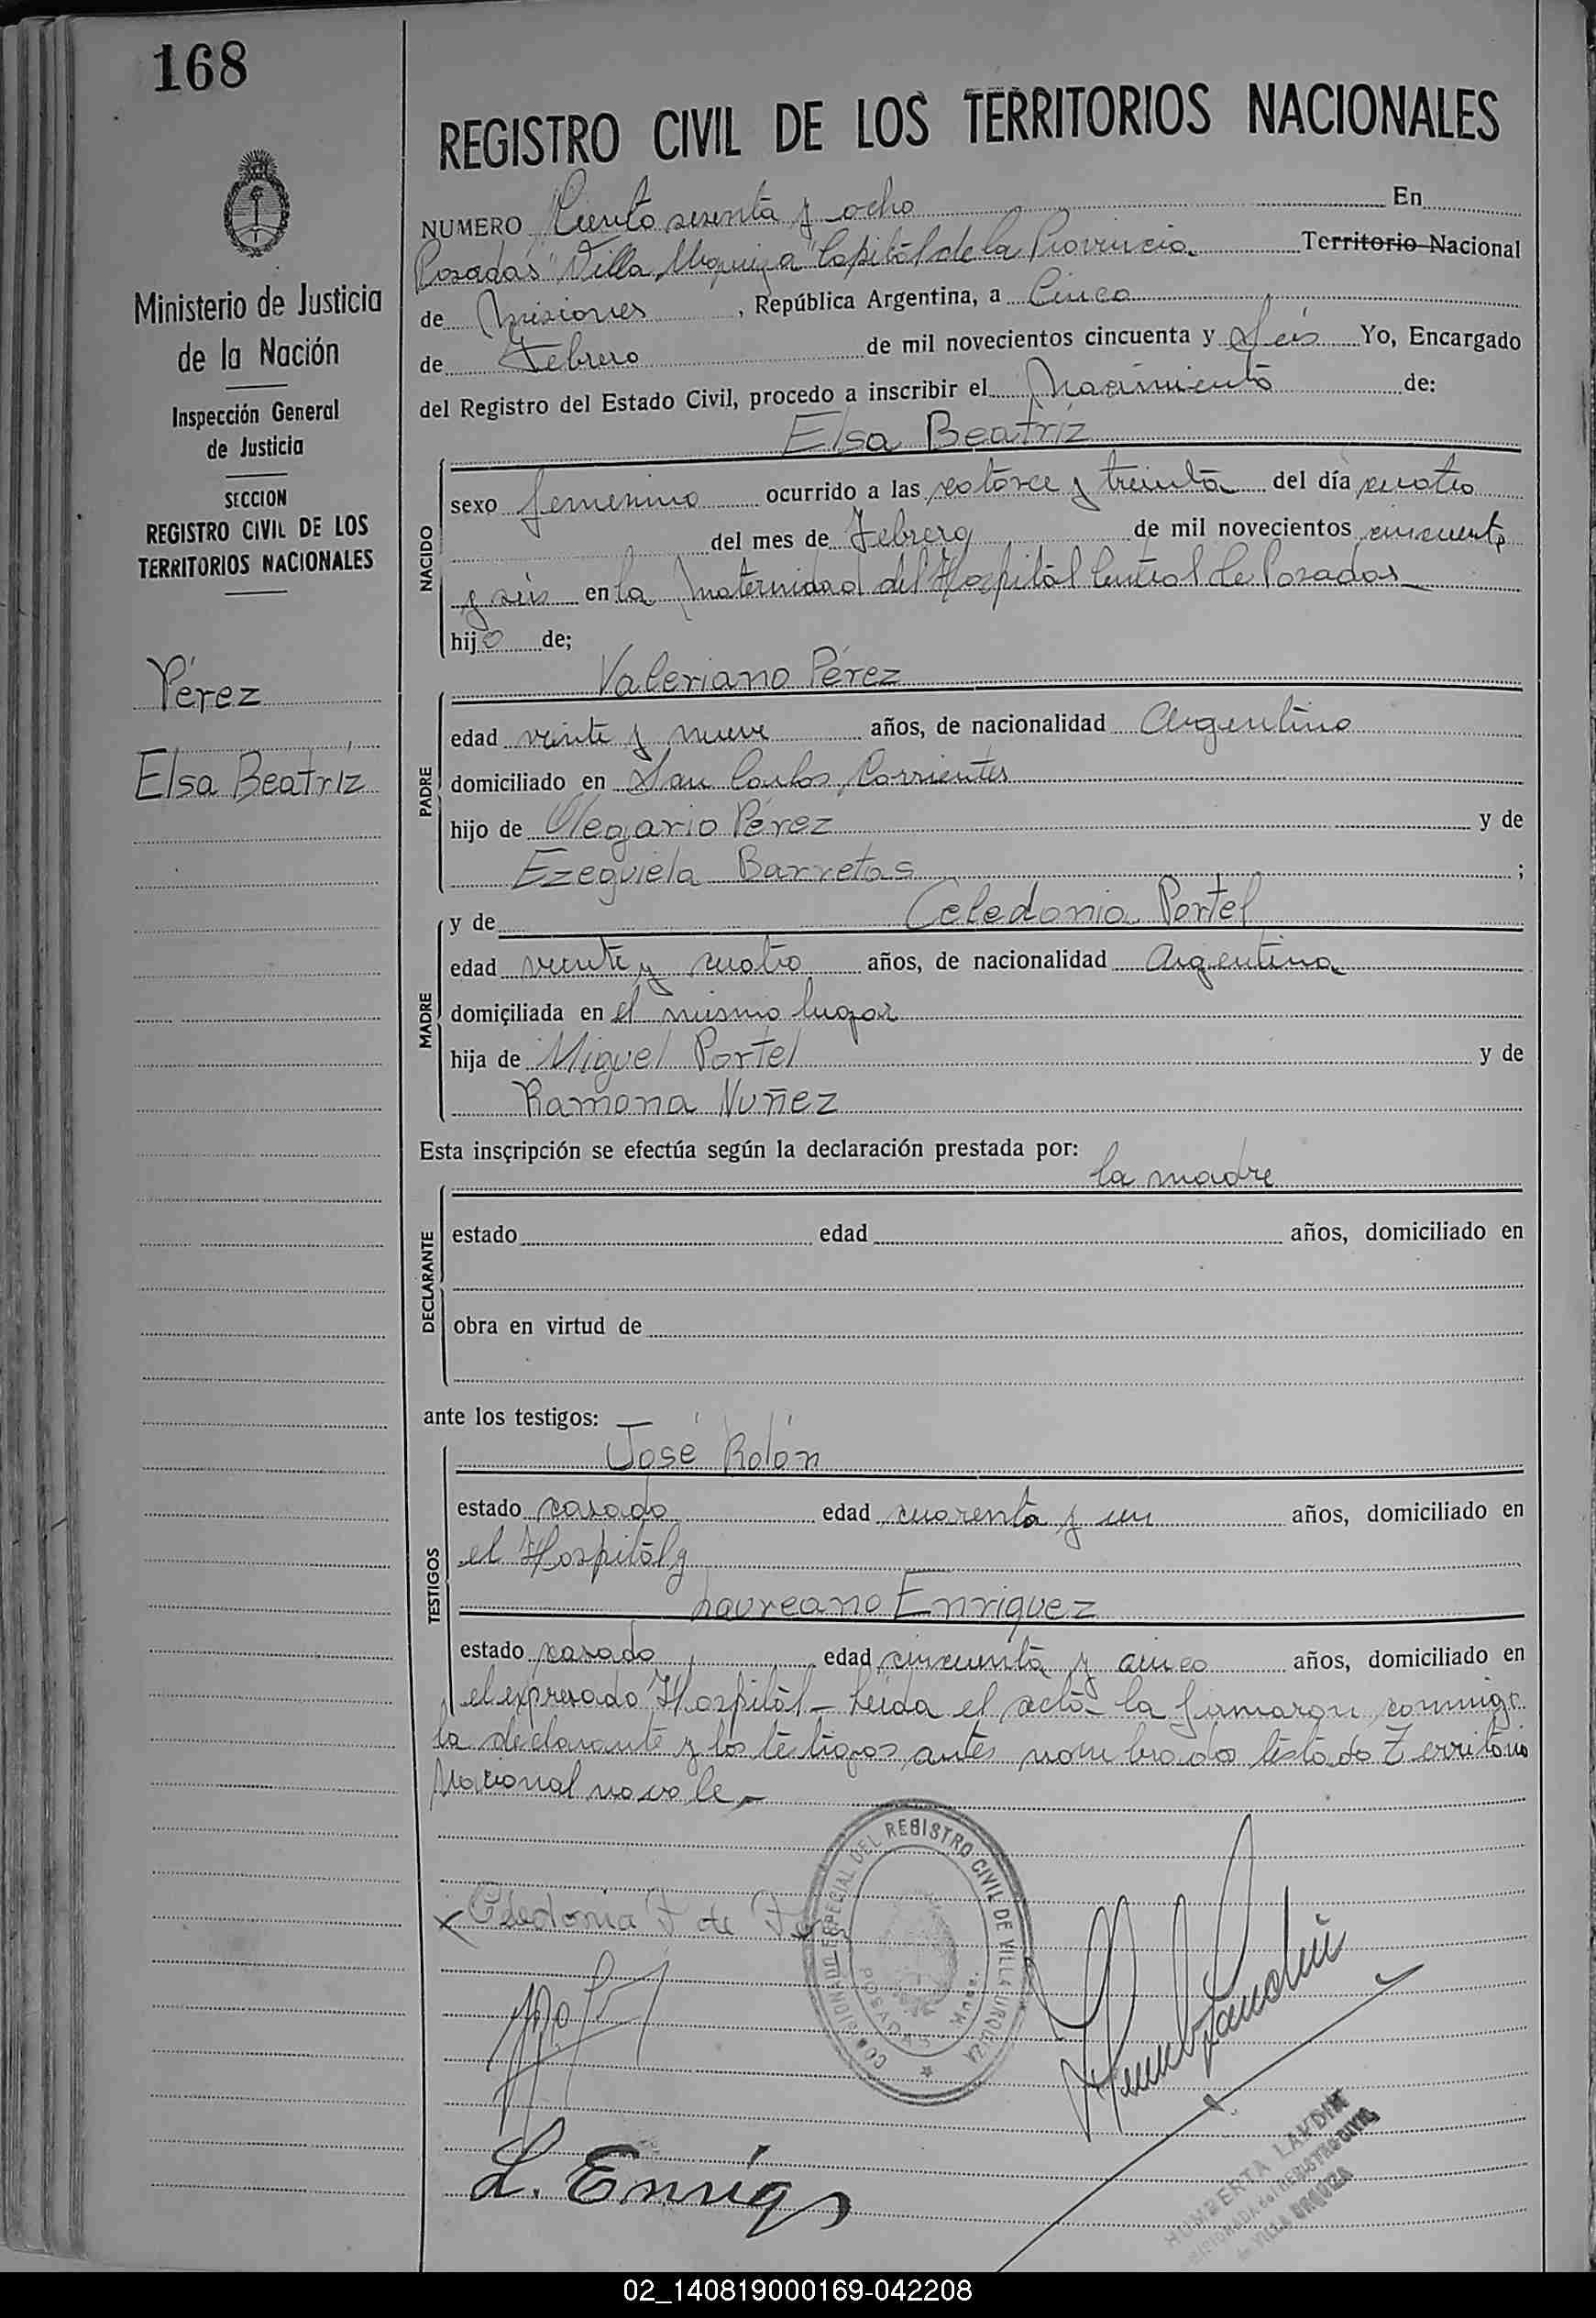 168
Ministerio de Justicia
de la Nación
Inspección General
de Justicia
SECCION
REGISTRO CIVIL DE LOS
TERRITORIOS NACIONALES
Pérez
Elsa Beatríz
REGISTRO CIVIL DE LOS TERRITORIOS NACIONALES
NUMERO Ciento sesenta y ocho En
Posadas "Villa Urquiza" Capital de la Provincia Territorio Nacional
de Misiones, República Argentina, a Cinco
de Febrero de mil novecientos cincuenta y Seis Yo, Encargado
del Registro del Estado Civil, procedo a inscribir el Nacimiento de:
Elsa Beatríz
NACIDO
sexo femenino ocurrido a las catorce y treinta del día cuatro
del mes de Febrero de mil novecientos cincuenta
y seis en la Maternidad del Hospital Central de Posadas
hijo de;
Valeriano Pérez
PADRE
edad veinte y nueve años, de nacionalidad Argentino
domiciliado en San Carlos, Corrientes
hijo de Olegario Pérez y de
Ezequiela Barretos ;
MADRE
y de Celedonia Portel
edad veinte y cuatro años, de nacionalidad Argentina
domiciliada en el mismo lugar
hija de Miguel Portel y de
Ramona Nuñez
Esta inscripción se efectúa según la declaración prestada por:
la madre
DECLARANTE
estado edad años, domiciliado en
obra en virtud de
ante los testigos:
José Rolón
TESTIGOS
estado casado edad cuarenta y un años, domiciliado en
el Hospital y
Laureano Enriquez
estado casado edad cincuenta y cinco años, domiciliado en
el expresado Hospital - Leida el acta la firmaron conmigo
la declarante y los testigos antes nombrados testado Territorio
Nacional no vale -
Celedonia P de
COMISIONADO ESPECIAL DEL REGISTRO CIVIL DE VILLA URQUIZA
L. Enriqz
HUMBERTA LANDINI
del REGISTRO CIVIL
de VILLA URQUIZA
02_140819000169-042208